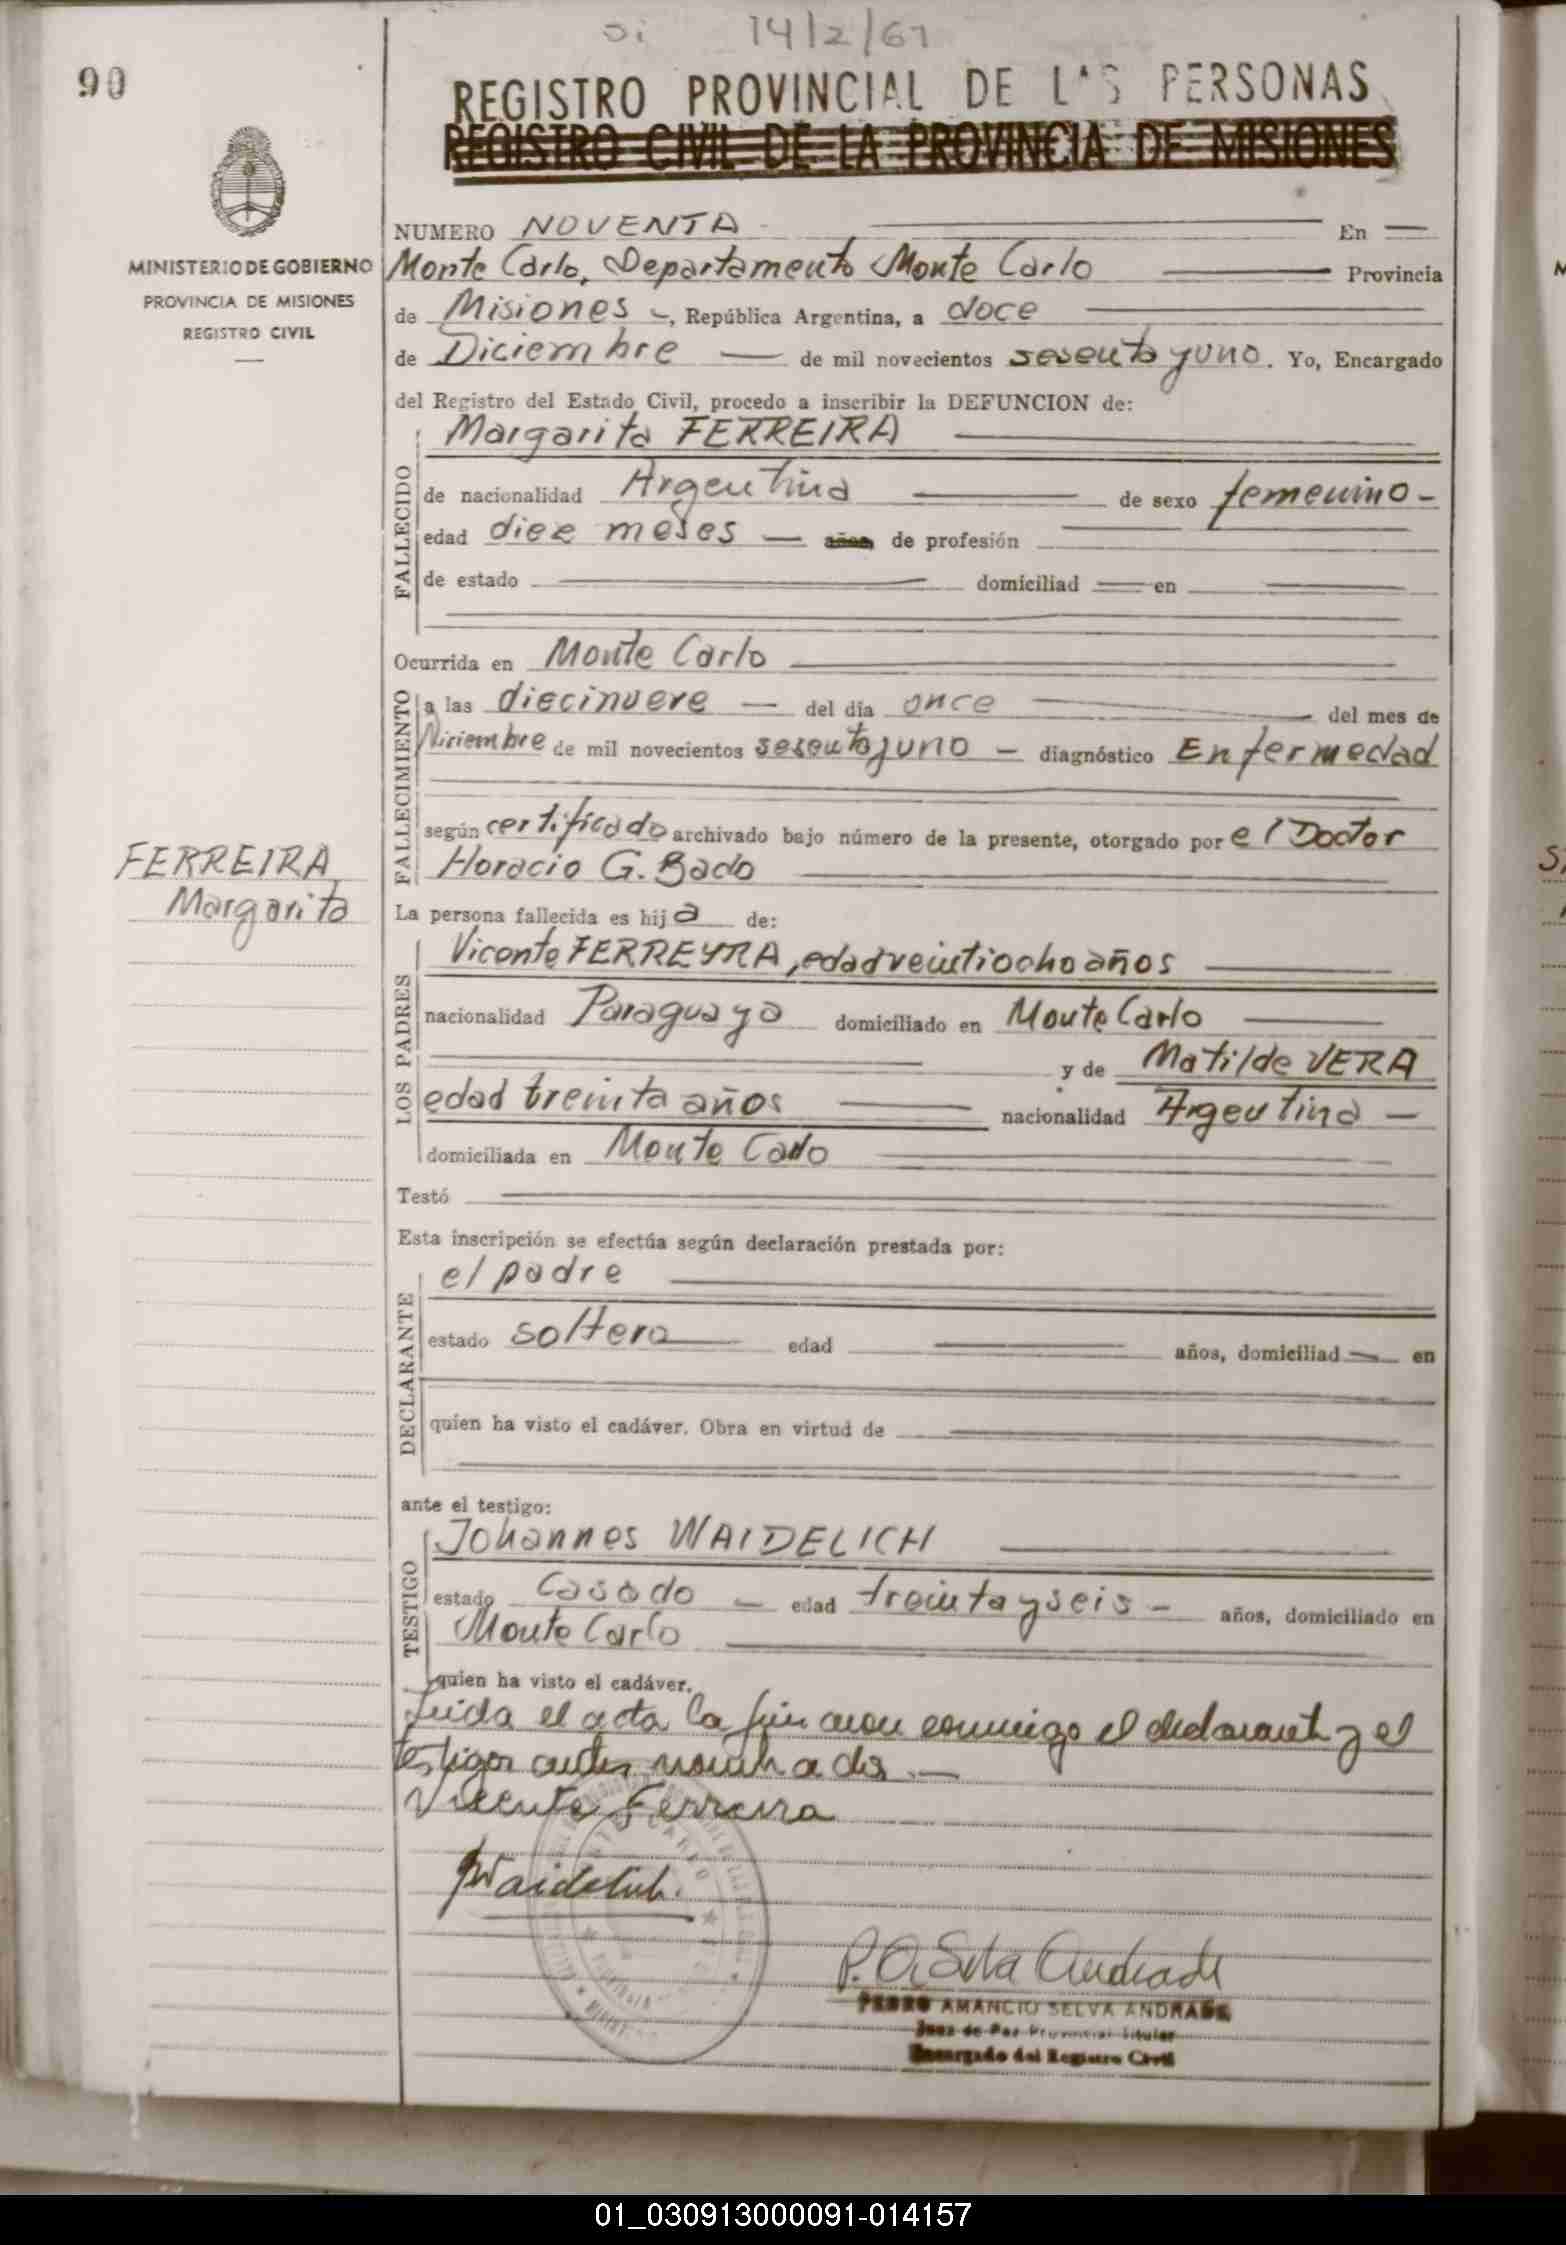 si 14/2/61
90
REGISTRO PROVINCIAL DE LAS PERSONAS
REGISTRO CIVIL DE LA PROVINCIA DE MISIONES
MINISTERIO DE GOBIERNO
PROVINCIA DE MISIONES
REGISTRO CIVIL
NUMERO NOVENTA En
Monte Carlo, Departamento Monte Carlo Provincia
de Misiones, República Argentina, a doce
de Diciembre de mil novecientos sesenta y uno. Yo, Encargado
del Registro del Estado Civil, procedo a inscribir la DEFUNCION de:
FALLECIDO
Margarita FERREIRA
de nacionalidad Argentina de sexo femenino -
edad diez meses años de profesión
de estado domiciliad en
Ocurrida en Monte Carlo
FALLECIMIENTO
a las diecinueve del día once del mes de
Diciembre de mil novecientos sesenta y uno - diagnóstico Enfermedad
según certificado archivado bajo número de la presente, otorgado por el Doctor
Horacio G. Bado
FERREIRA
Margarita
La persona fallecida es hija de:
LOS PADRES
Vicente FERREYRA, edad veintiocho años
nacionalidad Paraguaya domiciliado en Monte Carlo
y de Matilde VERA
edad treinta años nacionalidad Argentina -
domiciliada en Monte Carlo
Testó
Esta inscripción se efectúa según declaración prestada por:
DECLARANTE
el padre
estado soltero edad años, domiciliad en
quien ha visto el cadáver. Obra en virtud de
ante el testigo:
TESTIGO
Johannes WAIDELICH
estado Casado - edad treinta y seis - años, domiciliado en
Monte Carlo
quien ha visto el cadáver.
Leida el acta la firmaron conmigo el declarante y el
testigo antes nombrados.
Vicente Ferreira
Waidelich.
P. A. Selva Andrade
PEDRO AMANCIO SELVA ANDRADE
Juez de Paz Provincial Titular
Encargado del Registro Civil
01_030913000091-014157